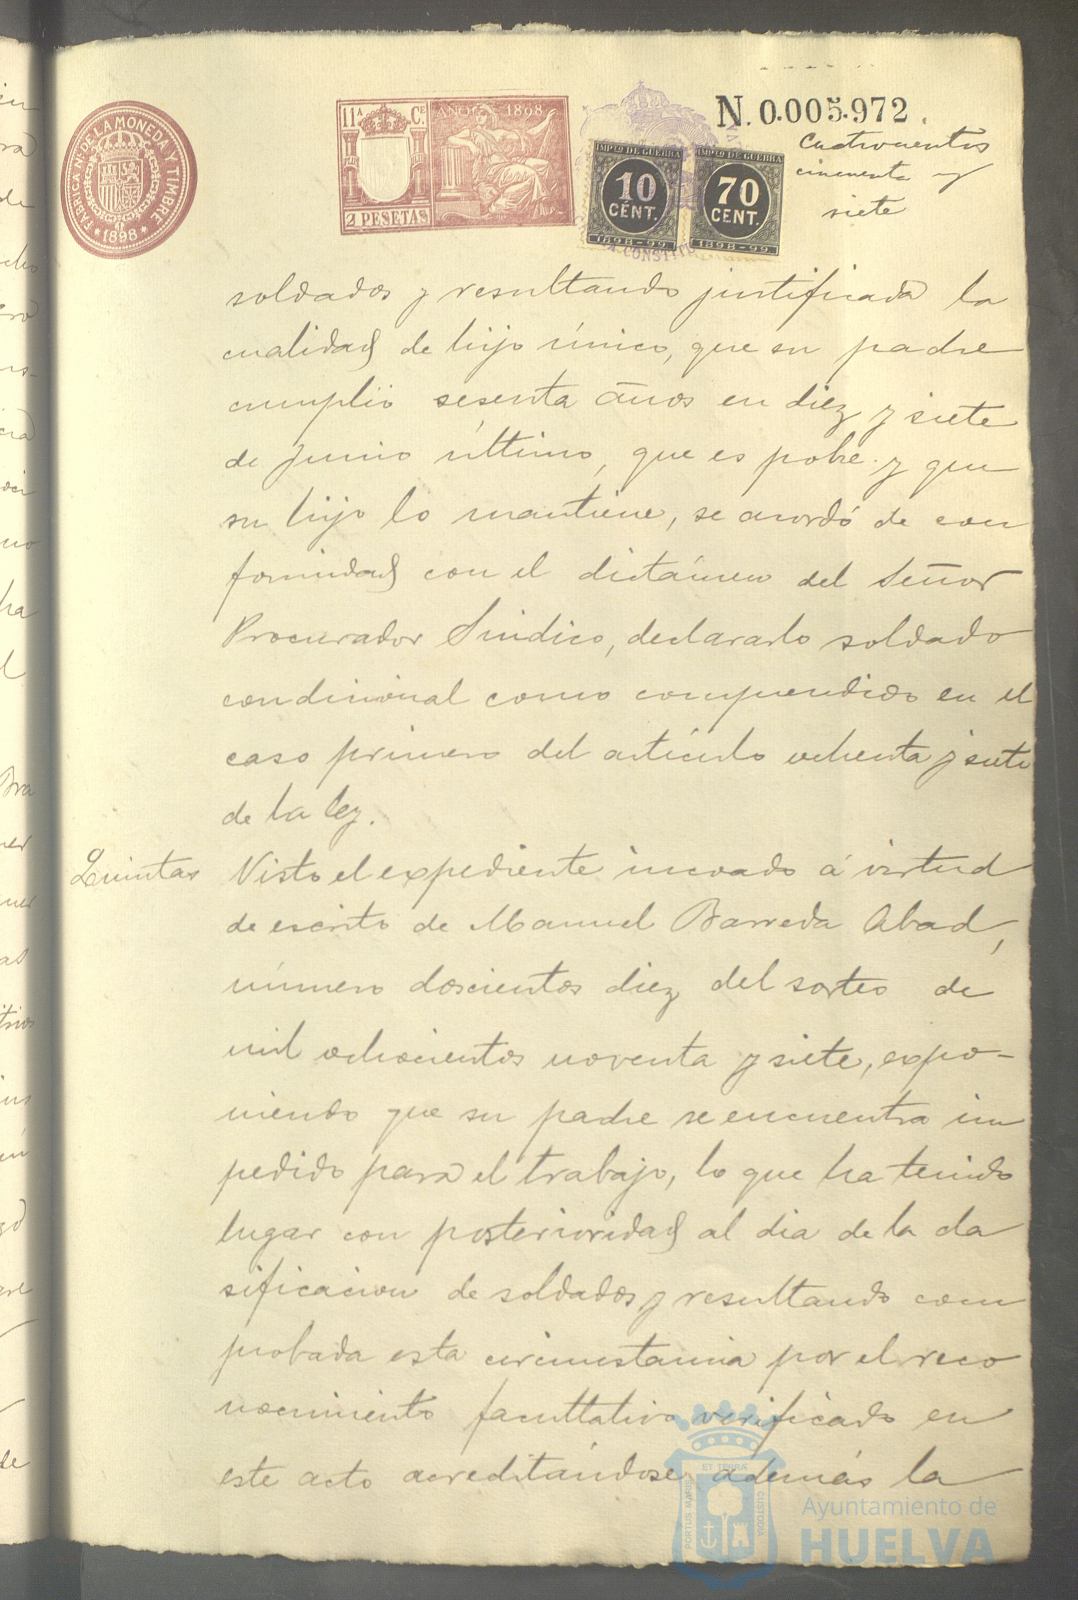 FABRICA N. DE LA MONEDA Y TIMBRE
* 1898 *
11ª Cᵉ
AÑO DE 1898
2 PESETAS
IMPTO DE GUERRA
10
CENT.
1898-99
IMPTO DE GUERRA
70
CENT.
1898-99
CONSTIT
N. 0.005.972
Cuatrocientos
cincuenta y
siete
soldados y resultando justificada la
cualidad de hijo único, que su padre
cumplió sesenta años en diez y siete
de Junio último, que es pobre y que
su hijo lo mantiene, se acordó de con
formidad con el dictámen del Señor
Procurador Sindico, declararlo soldado
condicional como comprendido en el
caso primero del artículo ochenta y siete
de la ley.
Quintas
Visto el expediente incoado á virtud
de escrito de Manuel Barreda Abad,
número doscientos diez del sorteo de
mil ochocientos noventa y siete, expo-
niendo que su padre se encuentra im
pedido para el trabajo, lo que ha tenido
lugar con posterioridad al dia de la cla
sificacion de soldados y resultando com
probada esta circunstancia por el reco
nocimiento facultativo verificado en
este acto acreditándose además la
ET TERRÆ
PORTUS MARIS
CUSTODIA
Ayuntamiento de
HUELVA